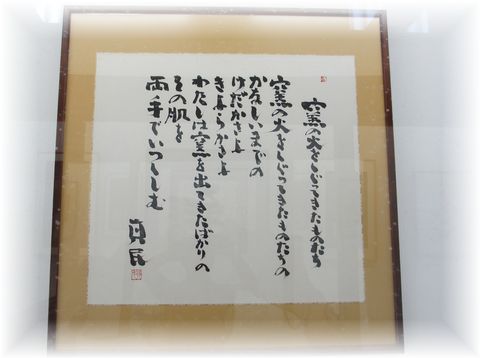 窯の火をくぐってきたものたち
窯の火をくぐってきたものたちの
かなしいまでの
けだかさよ
きよらかさよ
わたしは窯を出てきたばかりの
その肌を
両手でいつくしむ
真民